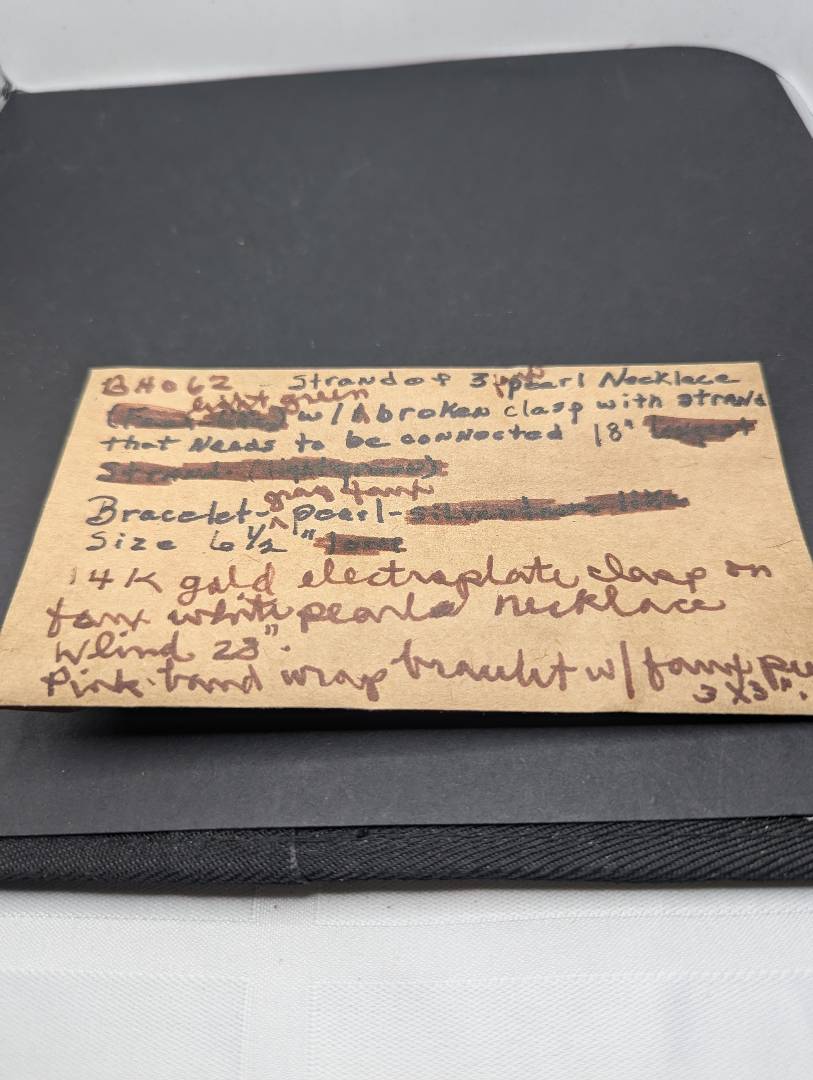 BH062 Strand of 3 pearl Necklace
light green
w/ A broken clasp with strand
that Needs to be connected 18"
gray faux
Bracelet - ^ pearl -
Size 6 1/2"
14K gold electroplate clasp on
faux white pearl necklace
23".
Pink band wrap bracelet w/ faux
3 x 3".